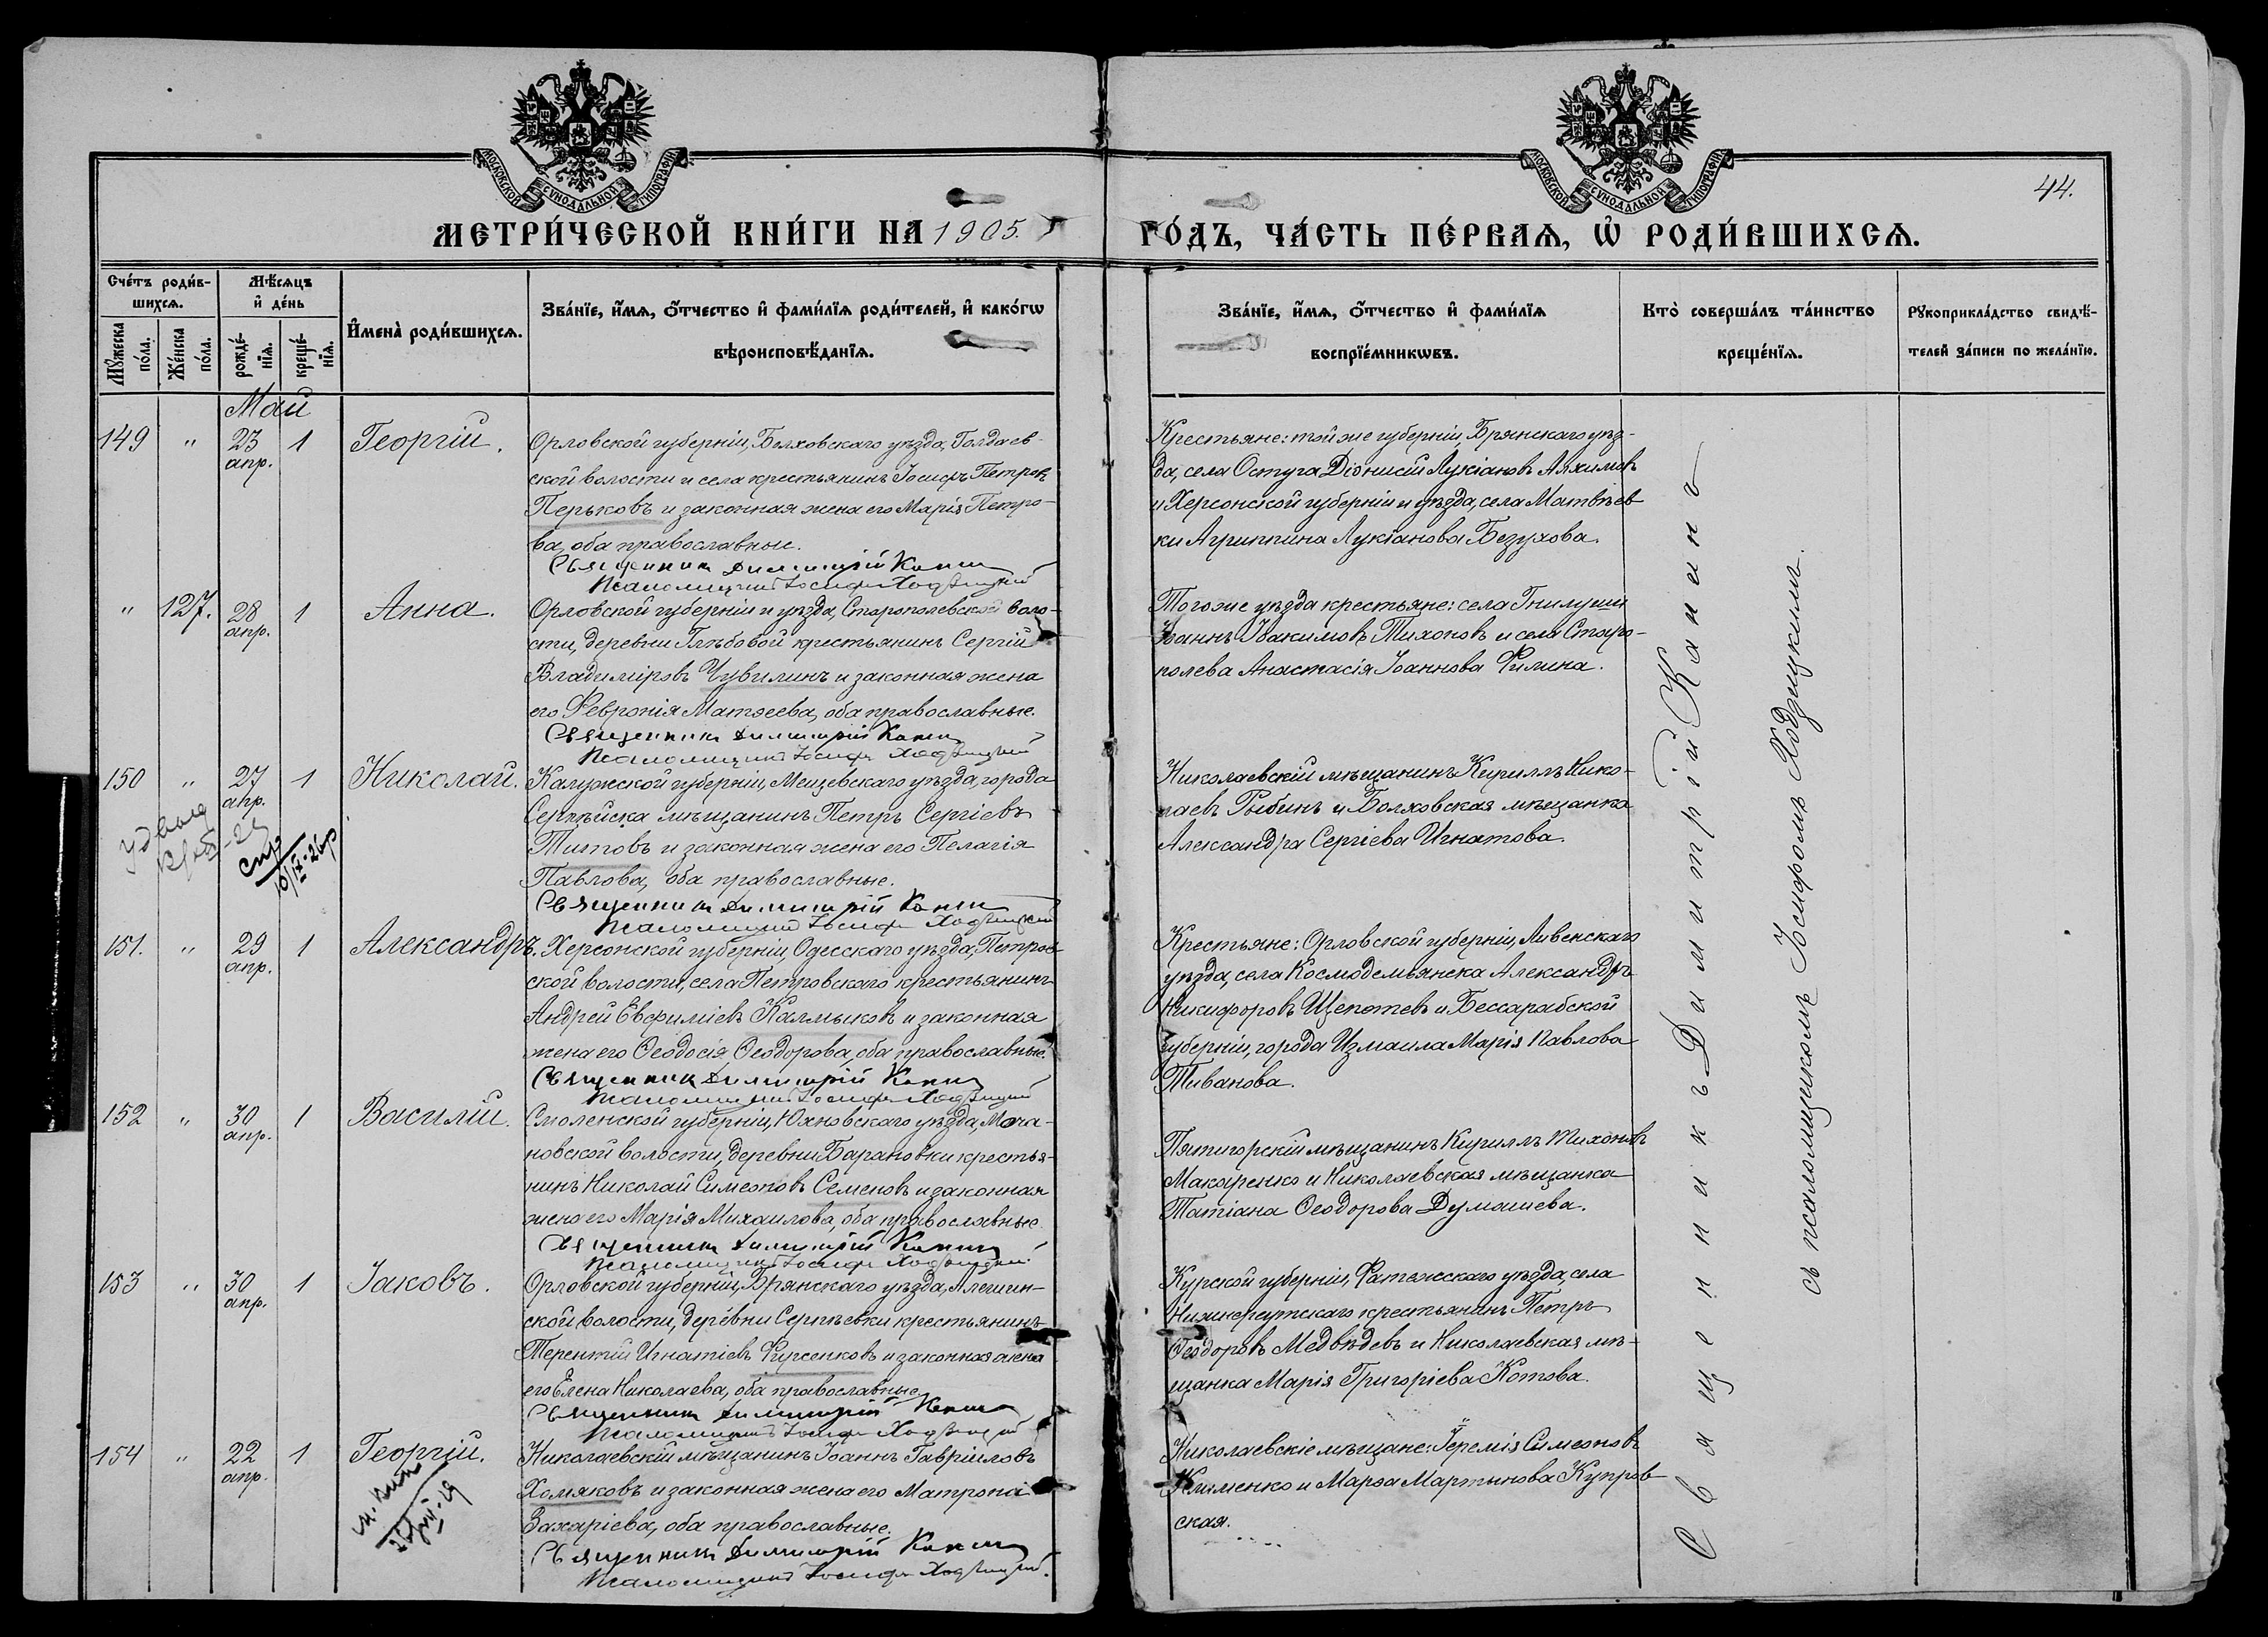 МОСКОВСКОЙ СѴНОДАЛЬНОЙ ТИПОГРАФІИ
МОСКОВСКОЙ СѴНОДАЛЬНОЙ ТИПОГРАФІИ
44.
МЕТРИ́ЧЕСКОЙ КНИ́ГИ НА 1905.
ГО́ДЪ, ЧА́СТЬ ПЕ́РВАѦ, Ѡ҆ РОДИ́ВШИХСѦ.
Сче́тъ роди́в-
шихсѧ.
Мꙋ́жеска
по́ла.
Же́нска
по́ла.
Мѣ́сѧцъ
и҆ де́нь
рожде́-
нїѧ.
креще́-
нїѧ.
И҆мена̀ роди́вшихсѧ.
Зва́нїе, и҆́мѧ, ѻ҆́тчество и҆ фами́лїѧ роди́телей, и҆ како́гѡ
вѣроисповѣ́данїѧ.
Зва́нїе, и҆́мѧ, ѻ҆́тчество и҆ фами́лїѧ
воспрїе́мникѡвъ.
Кто̀ соверша́лъ та́инство
креще́нїѧ.
Рꙋкоприкла́дство свидѣ́-
телей за́писи по жела́нїю.
Май
149 " 23 апр. 1 Георгій.
Орловской губерніи, Болховскаго уѣзда, Голдаев-
ской волости и села крестьянинъ Іосифъ Петровъ
Перьковъ и законная жена его Марія Петро-
ва, оба православные.
Священникъ Димитрій Канин
Псаломщикъ Іосифъ Ходзицкій
Крестьяне: той же губерніи, Брянскаго уѣз-
да, села Остуга Діонисій Лукіановъ Алхимовъ
и Херсонской губерніи и уѣзда, села Матвѣев
ки Агриппина Лукіанова Безухова.
" 127. 28 апр. 1 Анна.
Орловской губерніи и уѣзда, Старополевской воло-
сти, деревни Глѣбовой крестьянинъ Сергій
Владиміровъ Чувилинъ и законная жена
его Февронія Матѳеева, оба православные.
Священникъ Димитрій Канин
Псаломщикъ Іосифъ Ходзицкій
Того же уѣзда крестьяне: села Гнилуши
Іоаннъ Іоакимовъ Тихоновъ и села Старо-
полева Анастасія Іоаннова Филина.
150 " 27 апр. 1 Николай.
Калужской губерніи, Мещевскаго уѣзда, города
Серпѣйска мѣщанинъ Петръ Сергіевъ
Титовъ и законная жена его Пелагія
Павлова, оба православные.
Священникъ Димитрій Канин
Псаломщикъ Іосифъ Ходзицкій
Николаевскій мѣщанинъ Кириллъ Нико-
лаевъ Рыбинъ и Болховская мѣщанка
Александра Сергіева Игнатова.
151. " 29 апр. 1 Александръ.
Херсонской губерніи, Одесскаго уѣзда, Петров-
ской волости, села Петровскаго крестьянинъ
Андрей Евфиміевъ Калмыковъ и законная
жена его Ѳеодосія Ѳеодорова, оба православные.
Священникъ Димитрій Канин
Псаломщикъ Іосифъ Ходзицкій
Крестьяне: Орловской губерніи, Ливенскаго
уѣзда, села Космодемьянска Александръ
Никифоровъ Щепотевъ и Бессарабской
губерніи, города Измаила Марія Павлова
Тиванова.
152 " 30 апр. 1 Василій.
Смоленской губерніи, Юхновскаго уѣзда, Моча-
новской волости, деревни Барановки крестья-
нинъ Николай Симеоновъ Семеновъ и законная
жена его Марія Михаилова, оба православные.
Священникъ Димитрій Канин
Псаломщикъ Іосифъ Ходзицкій
Пятигорскій мѣщанинъ Кириллъ Тихоновъ
Макаренко и Николаевская мѣщанка
Татіана Ѳеодорова Думашева.
153 " 30 апр. 1 Іаковъ.
Орловской губерніи, Брянскаго уѣзда, Алешин-
ской волости, деревни Сергѣевки крестьянинъ
Терентій Игнатіевъ Фирсенковъ и законная жена
его Елена Николаева, оба православные.
Священникъ Димитрій Канин
Псаломщикъ Іосифъ Ходзицкій
Курской губерніи, Фатежскаго уѣзда, села
Нижнереутскаго крестьянинъ Петръ
Ѳеодоровъ Медвѣдевъ и Николаевская мѣ-
щанка Марія Григоріева Котова.
154 " 22 апр. 1 Георгій.
Николаевскій мѣщанинъ Іоаннъ Гавріиловъ
Хомяковъ и законная жена его Матрона
Захаріева, оба православные.
Священникъ Димитрій Канин
Псаломщикъ Іосифъ Ходзицкій.
Николаевскіе мѣщане: Іеремія Симеоновъ
Клименко и Марѳа Мартынова Купров
ская.
Священникъ Димитрій Канинъ
съ псаломщикомъ Іосифомъ Ходзицкимъ.